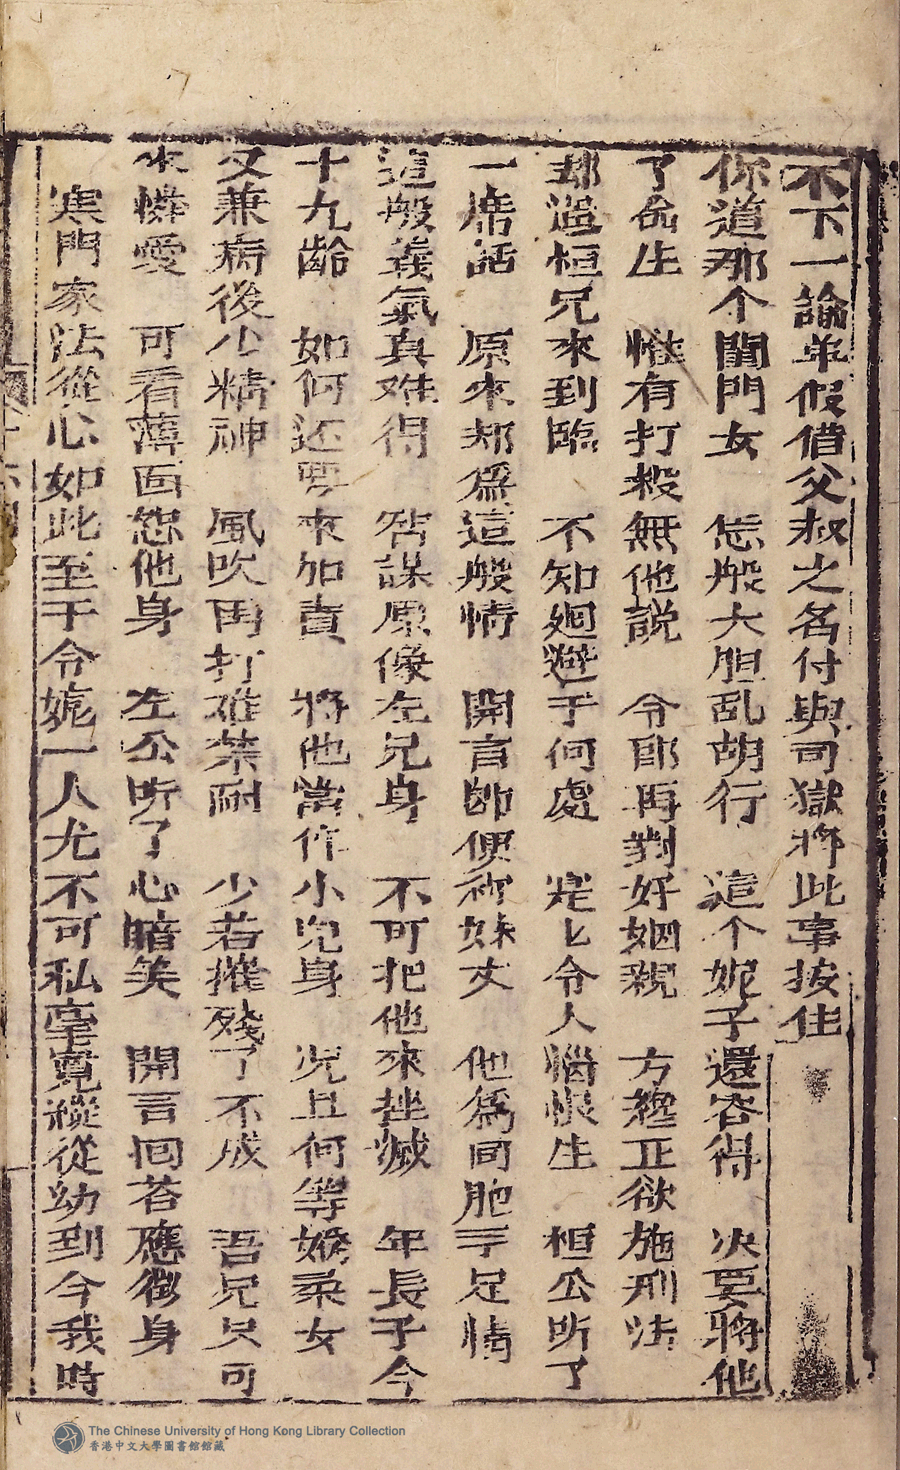 不下一諭单假借父叔之名付與司獄将此事按住
你道那个閨門女　怎般大胆乱胡行　這个妮子還容得　决要將他
了命生　惟有打殺無他説　令郎再對好姻親　方纔正欲施刑法
却遇恒兄來到臨　不知廻避于何處　寔匕令人惱恨生　桓公听了
一席話　原來却爲這般情　開言即便称妹丈　他爲同胞手足情
這般義氣真难得　智謀原像左兄身　不可把他來挫滅　年長于今
十九齡　如何还要來加責　將他當作小兒身　况且何等嬌柔女
又兼病後少精神　風吹再打难禁耐　少若摧殘了不成　吾兄只可
來憐愛　可看薄面恕他身　左公听了心暗笑　開言回荅應徵身
寒門家法從心如此至于令妮一人尤不可私毫寬縱從幼到今我時
The Chinese University of Hong Kong Library Collection
香港中文大學圖書館館藏